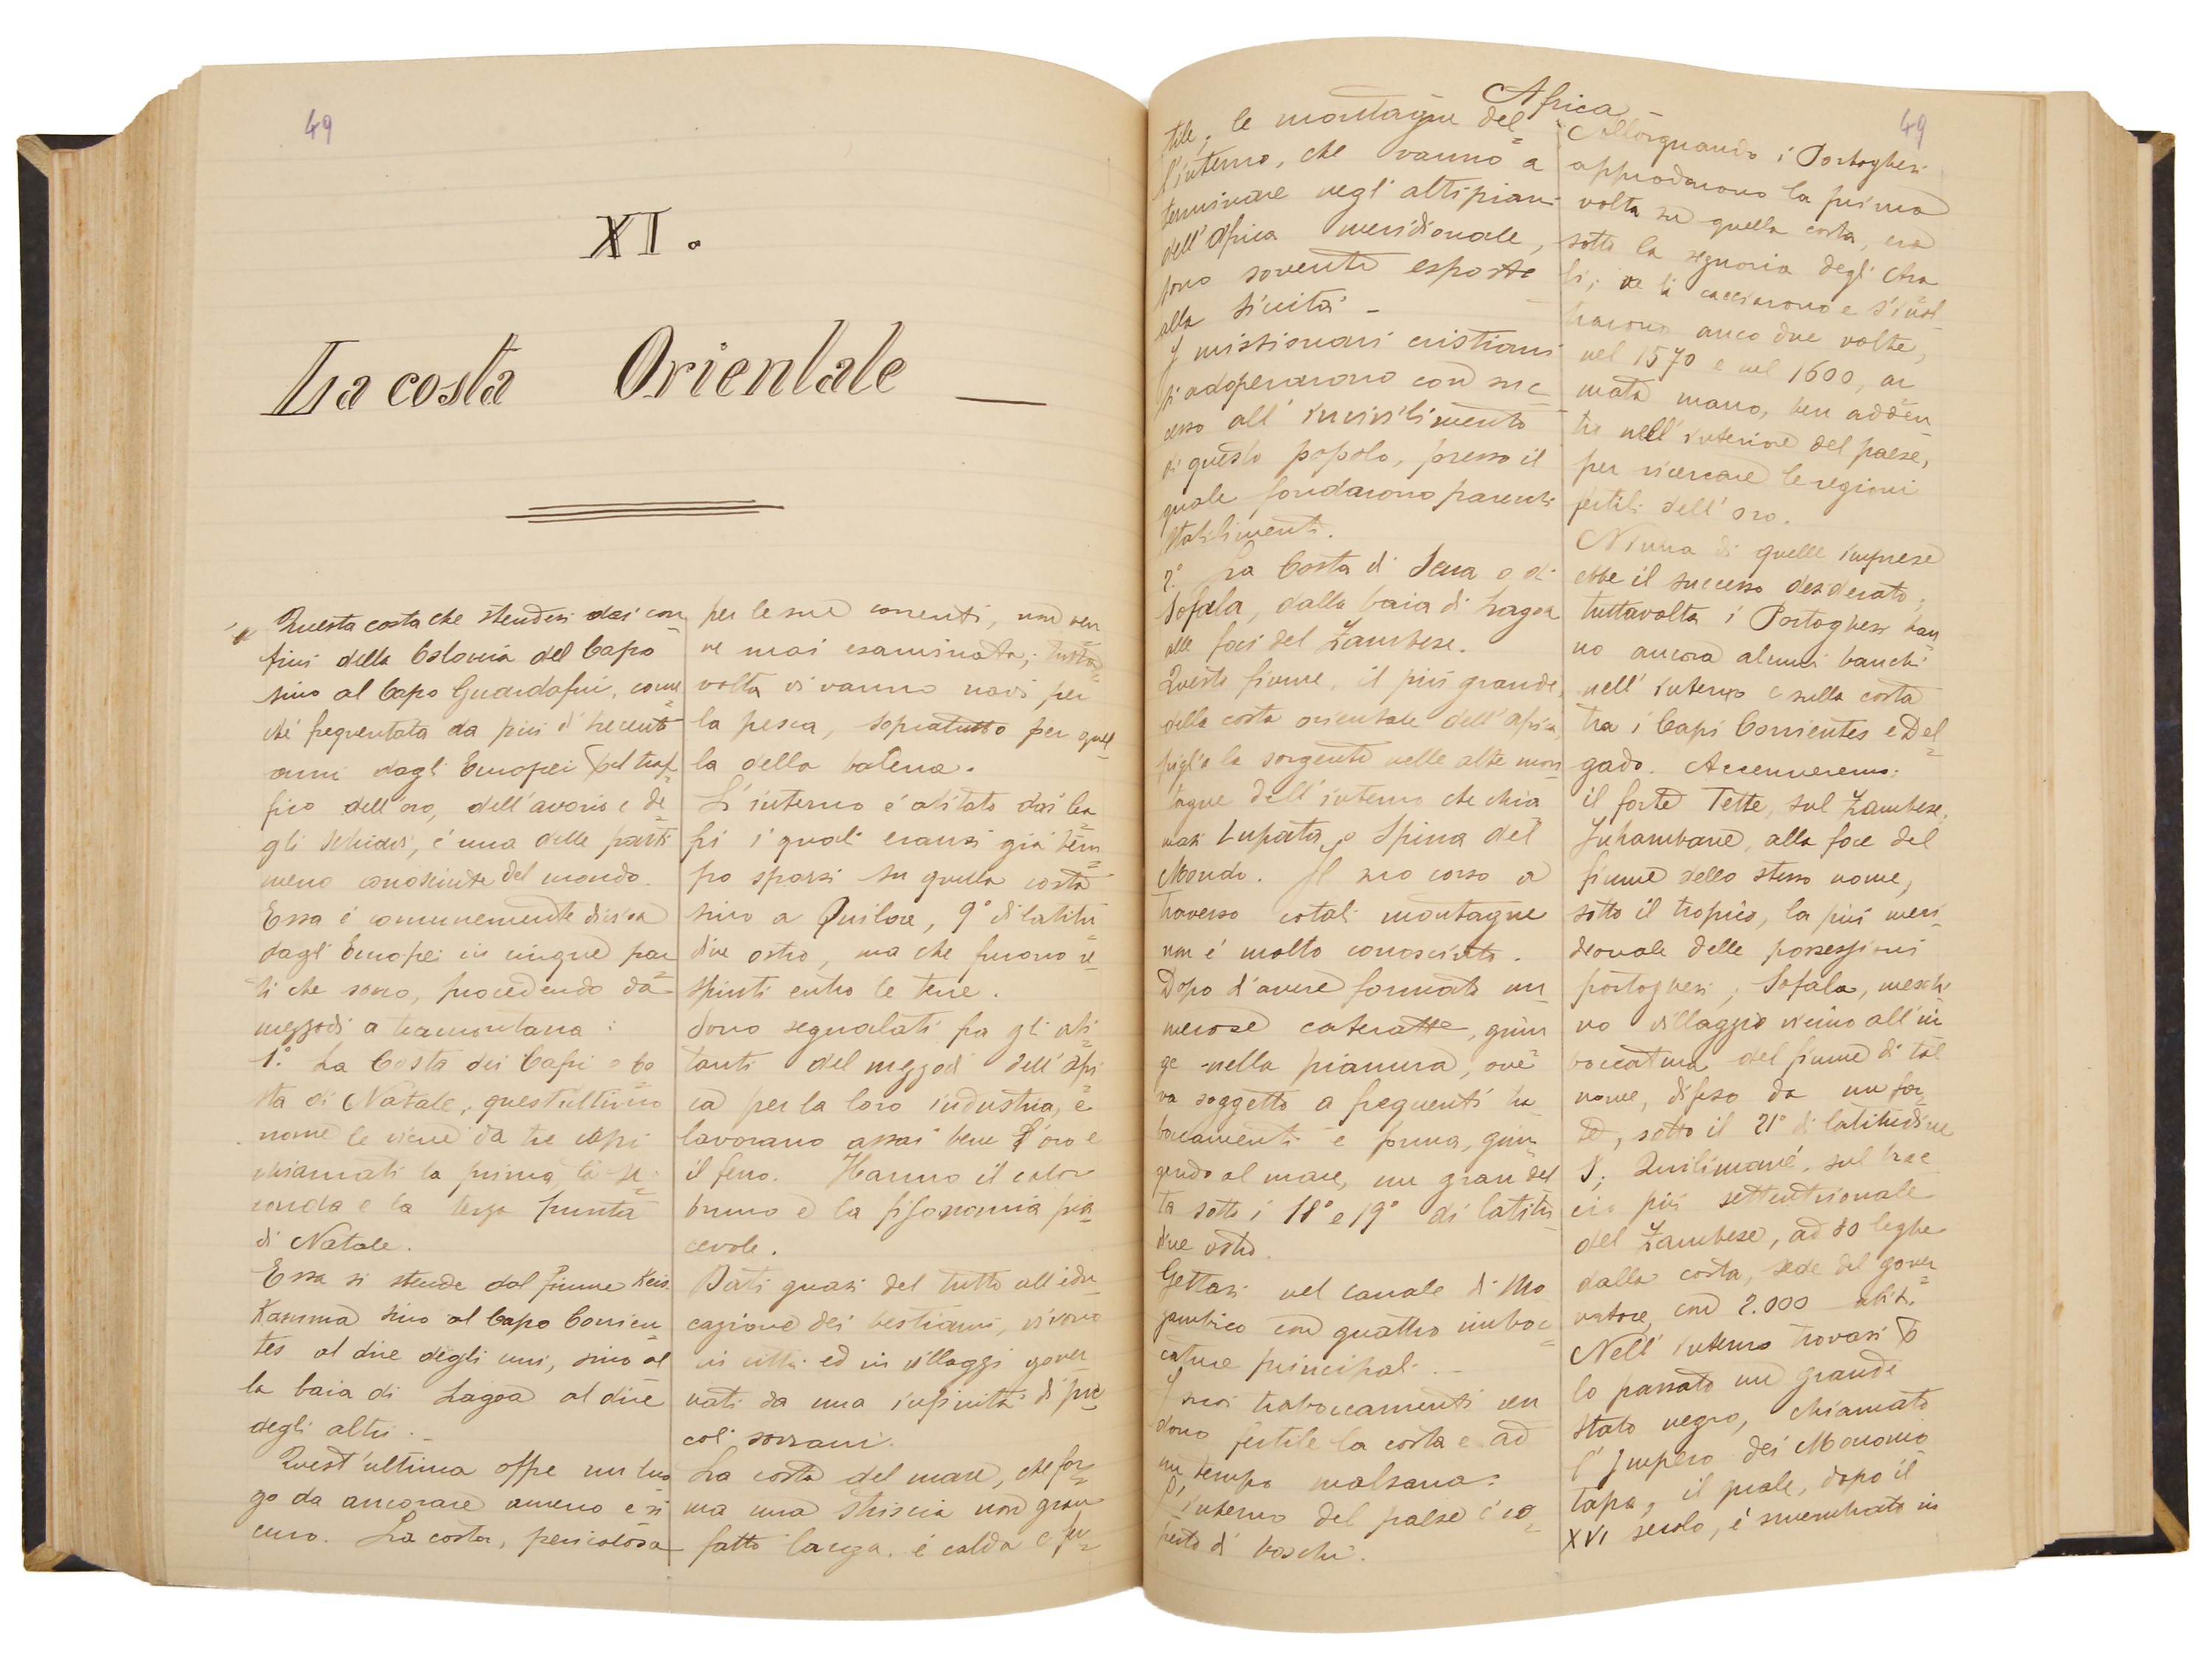 49
XI.
La costa Orientale —
Questa costa che stendesi dai con
fini della Colonia del Capo
sino al Capo Guardafui, come
ché frequentata da più di trecento
anni dagli Europei pel traf
fico dell'oro, dell'avorio e de
gli schiavi, é una delle parti
meno conosciute del mondo.
Essa é comunemente divisa
dagli Europei in cinque par
ti che sono, procedendo da
mezzodi a tramontana:
1.° La Costa dei Cafri o Co
sta di Natale, quest'ultimo
nome le viene da tre capi
chiamati la prima, la se
conda e la terza punta
di Natale.
Essa si stende dal fiume Keis
Kamma sino al Capo Corrien
tes al dire degli uni, sino al
la baia di Lagoa al dire
degli altri. —
Quest'ultima offre un luo
go da ancorare ameno e si
curo. La costa, pericolosa
per le sue correnti, non ven
ne mai esaminata; tutta
volta vi vanno navi per
la pesca, sopratutto per quel
la della balena.
L'interno é abitato dai Ca
fri i quali eransi già tem
po sparsi su quella costa
sino a Quiloa, 9° di latitu
dine ostro, ma che furono re
spinti entro le terre.
Sono segnalati fra gli abi
tanti del mezzodi dell'Afri
ca per la loro industria, e
lavorano assai bene l'oro e
il ferro. Hanno il color
bruno e la fisonomia pia
cevole.
Dati quasi del tutto all'edu
cazione dei bestiami, vivono
in città ed in villaggi gover
nati da una infinità di pic
coli sovrani.
La costa del mare, che for
ma una striscia non gran
fatto larga, é calda e fer
Africa —
49
tile; le montagne del
l'interno, che vanno a
terminare negl'altipiani
dell'Africa meridionale,
sono sovente esposte
alla siccità —
I missionari cristiani
si adoperarono con suc
cesso all'incivilimento
di questo popolo, presso il
quale fondarono parecchi
stabilimenti.
2.° La Costa di Sena o di
Sofala, dalla baia di Lagoa
alle foci del Zambese.
Questo fiume, il più grande,
della costa orientale dell'Africa,
piglia la sorgente nelle alte mon
tagne dell'interno che chia
masi Lupata, o Spina del
Mondo. Il suo corso a
traverso cotali montagne
non é molto conosciuto.
Dopo d'avere formato nu
merose cateratte, giun
ge nella pianura, ove
va soggetto a frequenti tra
boccamenti e forma, giun
gendo al mare, un gran del
ta sotto i 18° e 19° di latitu
dine ostro.
Gettasi nel canale di Mo
zambico con quattro imboc
cature principali. —
I suoi traboccamenti ren
dono fertile la costa e ad
un tempo malsana.
L'interno del paese é co
perto di boschi.
Allorquando i Portoghesi
approdarono la prima
volta su quella costa, era
sotto la signoria degli Ara
bi; ve li cacciarono e s'inol
trarono anco due volte,
nel 1570 e nel 1600, ar
mata mano, ben adden
tro nell'interiore del paese,
per ricercare le regioni
fertili dell'oro.
Niuna di quelle imprese
ebbe il successo desiderato;
tuttavolta i Portoghesi han
no ancora alcuni banchi
nell'interno e sulla costa
tra i Capi Corrientes e Del
gado. Accenneremo:
il forte Tette, sul Zambese,
Inhambane, alla foce del
fiume dello stesso nome,
sotto il tropico, la più meri
dionale delle possessioni
portoghesi; Sofala, meschi
no villaggio vicino all'im
boccatura del fiume di tal
nome, difeso da un for
te, sotto il 21° di latitudine
S; Quilimané, sul brac
cio più settentrionale
del Zambese, ad 80 leghe
dalla costa, sede del gover
natore, con 2.000 abit.
Nell'interno trovasi
lo passato un grande
stato negro, chiamato
l'Impero dei Monomo
tapa, il quale, dopo il
XVI secolo, é smembrato in